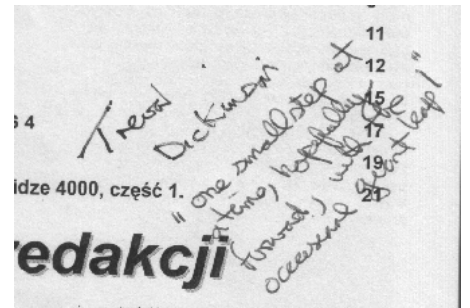 11
12
s 4
15
17
idze 4000, część 1.
19
21
redakcji
Trevor
Dickinson
"one small step at
a time, hopefully
forward!, with the
occasional giant leap!"